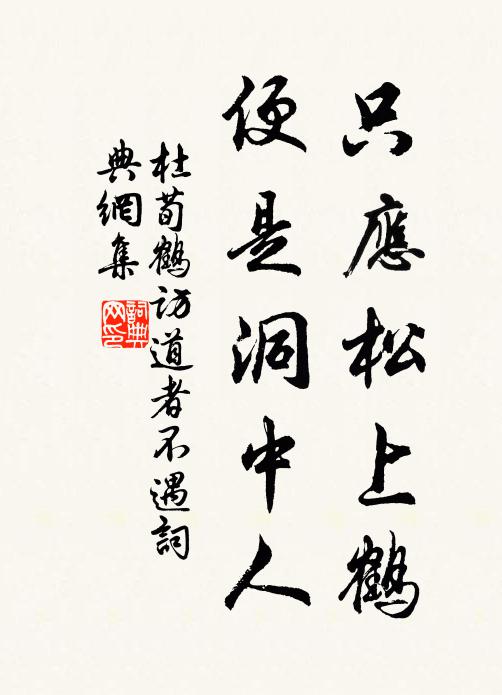 只應松上鶴
便是洞中人
杜荀鶴訪道者不遇詞
典網集
詞典
网印